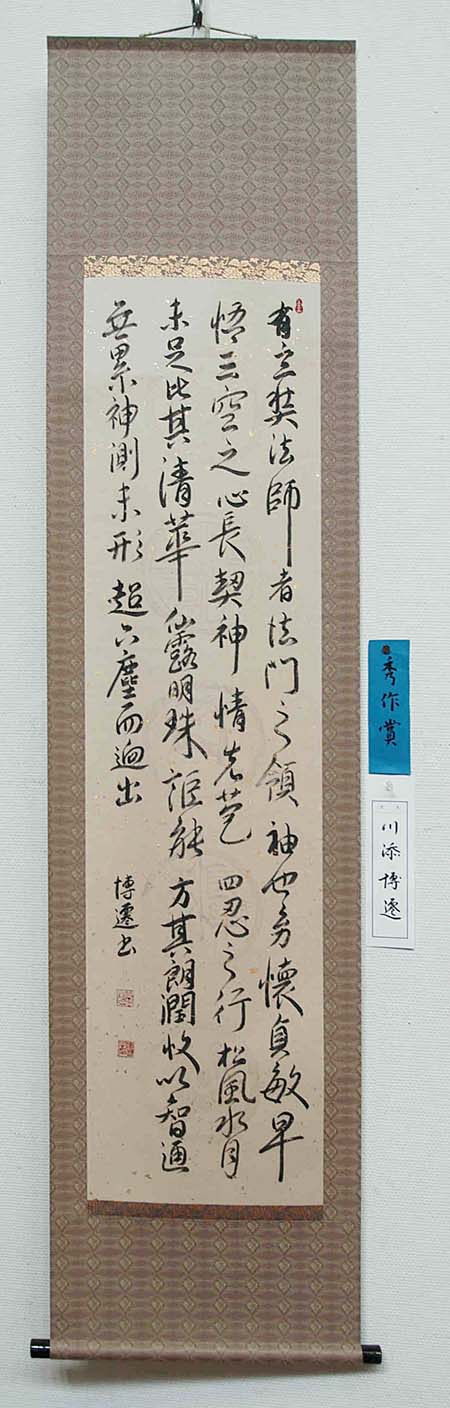 有玄奘法師者法門之領袖也幼懷貞敏早
悟三空之心長契神情先苞四忍之行松風水月
未足比其清華仙露明珠詎能方其朗潤故以智通
無累神測未形超六塵而迥出
博遷書
秀作賞
川添博遷